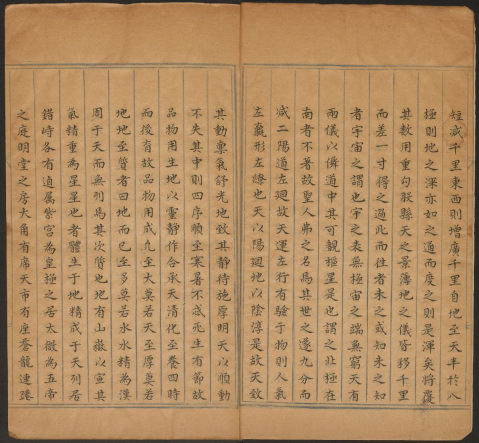 短減千里東西則增廣千里自地至天半於八
極則地之深亦如之通而度之則是渾矣將覆
其數用重勾股縣天之景薄地之儀皆移千里
而差一寸得之過此而往者未之或知未之知
者宇宙之謂也宇之表無極宙之端無窮天有
兩儀以儛道中其可覩樞星是也謂之北極在
南者不著故聖人弗之名焉其世之遂九分而
減二陽道左廻故天運左行有驗于物則人氣
左羸形左繚也天以陽廻地以陰淳是故天致
其動稟氣舒光地致其靜待施厚明天以順動
不失其中則四序順至寒暑不忒死生有節故
品物用生地以靈靜作合承天清化至養四時
而後育故品物用成凢至大莫若天至厚莫若
地地至質者曰地而已至多莫若水水精為漢
周于天而無列焉其次質也地有山嶽以宣其
氣精重為星星也者體生于地精成于天列居
錯峙各有逌屬紫宮為皇極之居太微為五帝
之庭明堂之房大角有席天市有座蒼龍連蜷